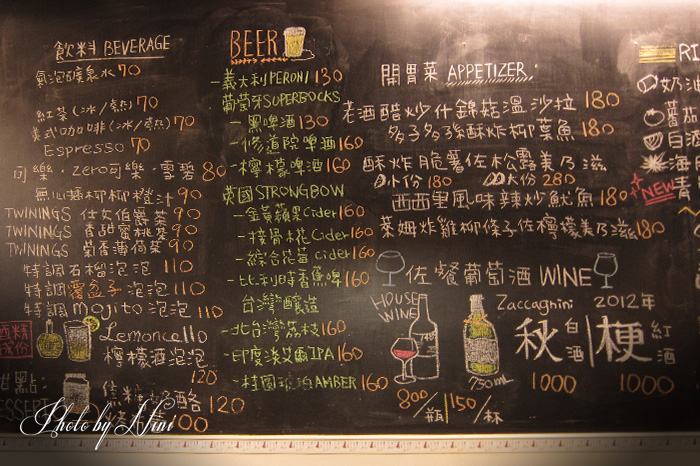 飲料 BEVERAGE
氣泡礦泉水 70
紅茶(冰/熱) 70
美式咖啡(冰/熱) 70
Espresso 70
可樂·zero可樂·雪碧 80
柳橙汁 90
TWININGS 仕女伯爵茶 90
TWININGS 香甜蜜桃茶 90
TWININGS 菊香薄荷茶 90
特調石榴泡泡 110
特調覆盆子泡泡 110
特調mojito泡泡 110
酒精成份
Lemoncello
檸檬酒泡泡
120
甜點:
DESSERT
酪 120
100
BEER
-義大利PERONI 130
葡萄牙SUPERBOCKS
-黑啤酒 130
-修道院啤酒 160
-檸檬啤酒 160
英國STRONGBOW
-金黃蘋果Cider 160
-接骨木花Cider 160
-綜合花莓cider 160
-比利時香蕉啤 160
台灣釀造
-北台灣荔枝 160
-印度淡艾爾IPA 160
-桂圓琥珀AMBER 160
開胃菜 APPETIZER
老酒醋炒什錦菇溫沙拉 180
多多多絲酥炸柳葉魚 180
酥炸脆薯佐松露美乃滋
小份 180 大份 280
西西里風味辣炒魷魚 180
萊姆炸雞柳條子佐檸檬美乃滋 180
佐餐葡萄酒 WINE
HOUSE WINE
800/瓶 150/杯
Zaccagnini 2012年
750ml
秋 白酒 | 梗 紅酒
1000 1000
RI
奶油
番茄
白酒
海
NEW
青
Photo by Nini